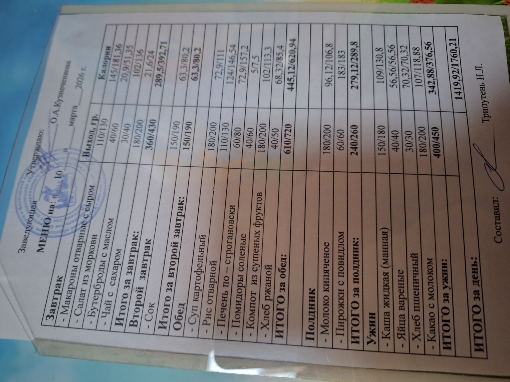 Заведующая
Утверждаю:
О.А.Кузнеченкова
МЕНЮ на: 10 марта 2026 г.
Выход, гр. Калории
Завтрак
- Макароны отварные с сыром 110/130 145/181,36
- Салат из моркови 40/60
- Бутерброды с маслом 30/40
- Чай с сахаром 180/200 21,6/24
Итого за завтрак: 360/430 289,5/392,71
Второй завтрак
- Сок 150/190 63,3/80,2
Итого за второй завтрак: 150/190 63,3/80,2
Обед
- Суп картофельный 180/200 72,9/111
- Рис отварной 110/130 124/146,54
- Печень по – строгановски 60/80 72,9/157,2
- Помидоры соленые 40/60 5/7,5
- Компот из сушеных фруктов 180/200 102/113,3
- Хлеб ржаной 40/50 68,32/85,4
ИТОГО за обед: 610/720 445,12/620,94
Полдник
- Молоко кипяченое 180/200 96,12/106,8
- Пирожки с повидлом 60/60 183/183
ИТОГО за полдник: 240/260 279,12/289,8
Ужин
- Каша жидкая (манная) 150/180 109/130,8
- Яйца вареные 40/40 56,56/56,56
- Хлеб пшеничный 30/30 70,32/70,32
- Какао с молоком 180/200 107/118,88
ИТОГО за ужин: 400/450 342,88/376,56
ИТОГО за день: 1419,92/1760,21
Составил: Трапутень Н.Л.